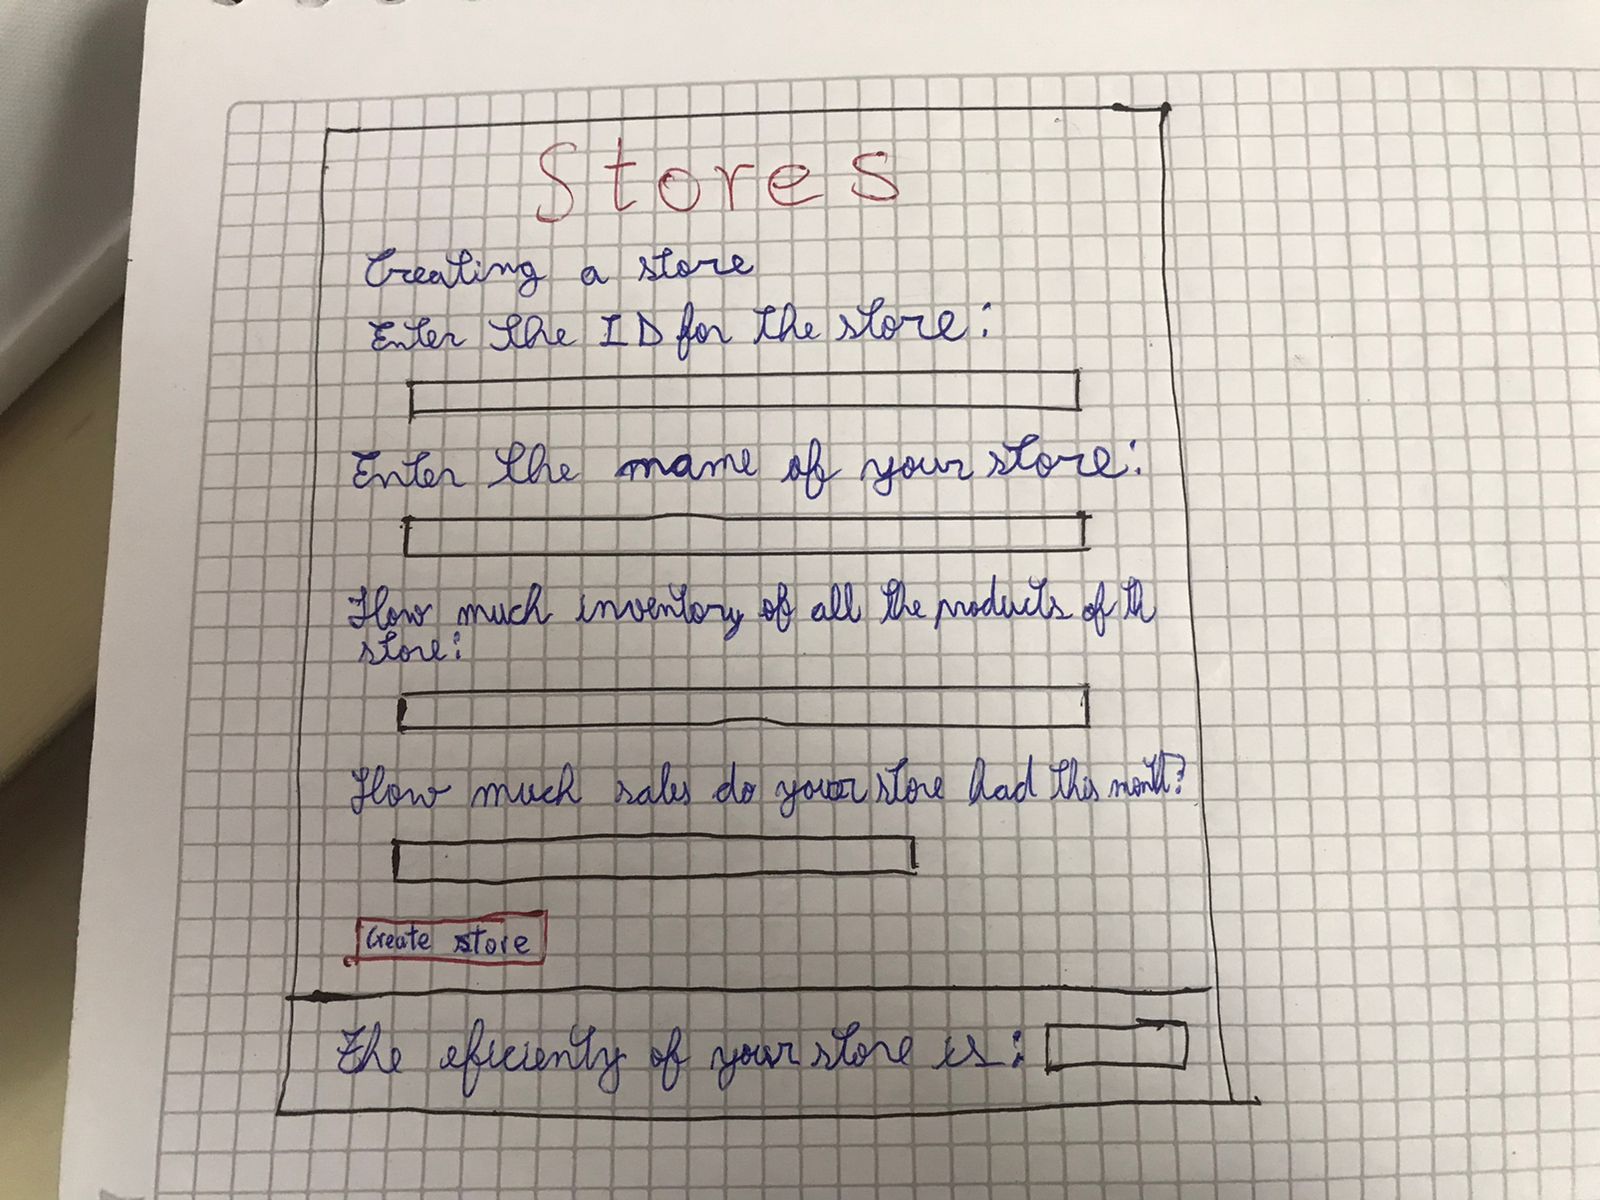 Stores
Creating a store
Enter the ID for the store:
Enter the name of your store:
How much inventory of all the products of th
store:
How much sales do your store had this month?
Create store
The eficienty of your store is: